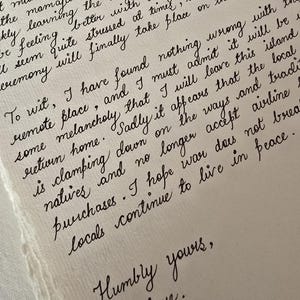 the
kly learning the
feeling better with
seem quite stressed at times,
ceremony will finally take place on
To wit, I have found nothing wrong with
remote place, and I must admit it will be
some melancholy that I will leave this island
return home. Sadly it appears that the local
is clamping down on the ways and
natives and no longer accept airline
purchases. I hope war does not
locals continue to live in peace.
Humbly yours,